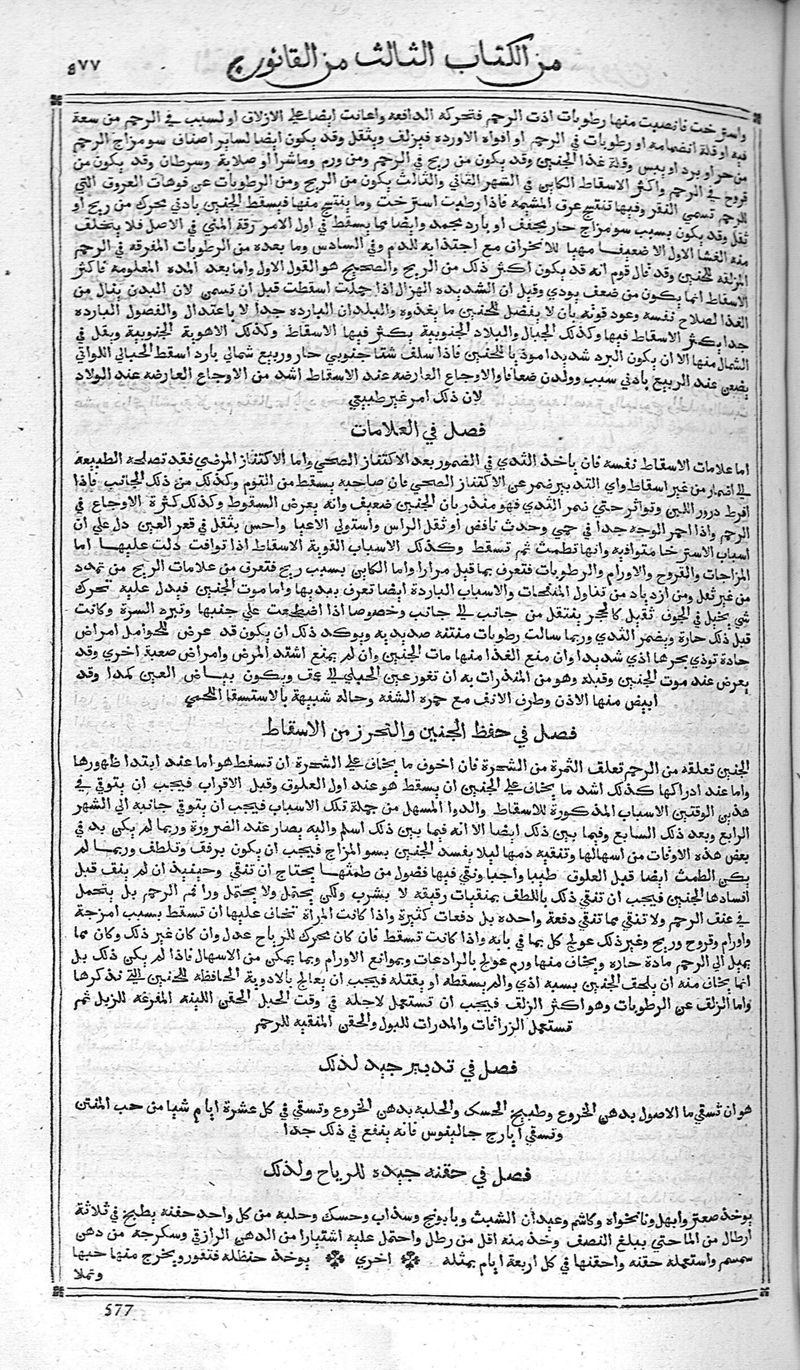 ٥٧٧
من الكتاب الثالث من القانون
واسترخت فانصبت منها رطوبات اذت الرحم فتحركه الدافعه واعانت ايضا على الازلاق او لسبب في الرحم من سعة
فيه او قلة انضمامه او رطوبات في الرحم او افواه الاورده فيزلف ويثقل وقد يكون ايضا لساير اصناف سو مزاج الرحم
من حر او برد او يبس وقلة غذا الجنين وقد يكون من ريح في الرحم ومن ورم وماشرا او صلابة وسرطان وقد يكون من
قروح في الرحم واكثر الاسقاط الكاين في الشهر الثاني والثالث يكون من الريح ومن الرطوبات عن فوهات العروق التي
للرحم تسمي النقر وفيها تنتسج عرق المشيمه فاذا رطبت استرخت وما ينتسج منها فيسقط الجنين بادني محرك من ريح او
ثقل وقد يكون بسبب سو مزاج حار مجفف او بارد مجمد وايضا مما يسقط في اول الامر رقة المني في الاصل فلا يتخلف
منه الغشا الاول الا ضعيفا مهيا للانخراق مع اجتذابه للدم وفي السادس وما بعده من الرطوبات المفرقه في الرحم
المزلقه للجنين وقد قال قوم انه قد يكون اكثر ذلك من الريح والصحيح هو القول الاول واما بعد المده المعلومه فاكثر
الاسقاط انما يكون من ضعف يودي وقيل ان الشديده الهزال اذا حملت اسقطت قبل ان تسمن لان البدن ينال من
الغذا لصلاح نفسه وعود قوته بان لا يفضل للجنين ما يغذوه والبلدان البارده جدا لا باعتدال والفصول البارده
جدا يكثر الاسقاط فيها وكذلك الجبال والبلاد الجنوبية يكثر فيها الاسقاط وكذلك الاهوية الجنوبية ويقل في
الشمال منها الا ان يكون البرد شديدا موذيا للجنين فاذا سلف شتا جنوبي حار وربيع شمالي بارد اسقط الحبالي اللواتي
يضعن عند الربيع بادني سبب وولدن ضعافا والاوجاع العارضه عند الاسقاط اشد من الاوجاع العارضه عند الولاد
لان ذلك امر غير طبيعي
فصل في العلامات
اما علامات الاسقاط نفسه فان ياخذ الثدي في الضمور بعد الاكتناز الصحي واما الاكتناز المرضي فقد تصلحه الطبيعة
الي انضمار من غير اسقاط واي التدبير ضمر عن الاكتناز الصحي فان صاحبه يسقط من التوم وكذلك من ذلك الجانب فاذا
افرط درور اللبن وتواتر حتي ضمر الثدي فهو منذر بان الجنين ضعيف وانه يعرض السقوط وكذلك كثرة الاوجاع في
الرحم واذا احمر الوجه جدا في حمي وحدث نافض او ثقل الراس واستولي الاعيا واحس بثقل في قعر العين دل علي ان
اسباب الاسترخا متوافيه وانها تطمث ثم تسقط وكذلك الاسباب القوية الاسقاط اذا توافت دلت عليها اما
المزاجات والقروح والاورام والرطوبات فتعرف بما قيل مرارا واما الكاين بسبب ريح فتعرف من علامات الريح من تمدد
من غير ثقل ومن ازدياد من تناول المنفخات والاسباب البادية ايضا تعرف بيديها واما موت الجنين فيدل عليه تحرك
شي يخيل في الجوف ثقيل كالحجر ينتقل من جانب الي جانب وخصوصا اذا اضطجعت علي جنبها وتبرد السرة وكانت
قبل ذلك حارة ويضمر الثدي وربما سالت رطوبات منتنه صديديه ويوكد ذلك ان يكون قد عرض للحوامل امراض
حادة توذي بحرها اذي شديدا وان منع الغذا منها مات الجنين وان لم يمنع اشتد المرض وامراض صعبة اخري وقد
يعرض عند موت الجنين وقبله وهو من المنذرات به ان تغور عين الحبلي الي عمق ويكون بياض العين كمدا وقد
ابيض منها الاذن وطرف الانف مع حمرة الشفه وحاله شبيهة بالاستسقا اللحمي
فصل في حفظ الجنين والتحرز من الاسقاط
الجنين تعلقه من الرحم تعلق الثمرة من الشجرة فان اخوف ما يخاف على الشجرة ان تسقط هو اما عند ابتدا ظهورها
واما عند ادراكها كذلك اشد ما يخاف علي الجنين ان يسقط هو عند اول العلوق وقبل الاقراب فيجب ان يتوقي في
هذين الوقتين الاسباب المذكورة للاسقاط والدوا المسهل من جملة تلك الاسباب فيجب ان يتوقي جانبه الي الشهر
الرابع وبعد ذلك السابع وفيما بين ذلك ايضا الا انه فيما بين ذلك اسلم واليه يصار عند الضرورة وربما لم يكن بد في
بعض هذه الاوقات من اسهالها وتنقيه دمها ليلا يفسد الجنين بسو المزاج فيجب ان يكون برفق وتلطف وربما لم
يكن الطمث ايضا قبل العلوق طبيا واجبا ونقي فيها فضول من طمثها يحتاج ان تنقي وحينيذ ان لم ينق قبل
افسادها الجنين فيجب ان تنقي ذلك باللطف بمنقيات رقيقه لا بشرب ولكن يحتمل ولا يحتمل ورا فم الرحم بل يتحمل
في عنق الرحم ولا تنقي مما تنقي دفعة واحده بل دفعات كثيرة واذا كانت المراة تخاف عليها ان تسقط بسبب امزجة
واورام وقروح وريح وغير ذلك عولج كل بما في بابه واذا كانت تسقط فان كان محرك للرياح عدل وان كان غير ذلك وكان مما
يميل الي الرحم مادة حاره ويخاف منها ورم عولج بالرادعات وبموانع الاورام وبما يمكن من الاسهال فاذا لم يكن ذلك بل
انما يخاف منه ان يلحق الجنين بسببه اذي والم يسقطه او يقتله فيجب ان يعالج بالادوية الحافظه للجنين التي نذكرها
واما الزلق عن الرطوبات وهو اكثر الزلق فيجب ان تستعمل لاجله في وقت الحبل الحقن اللينه المفرغه للزبل ثم
تستعمل الزراقات والمدرات للبول والحقن المنقيه للرحم
فصل في تدبير جيد لذلك
هو ان تسقي ما الاصول بدهن الخروع وطبيخ الحسك والحلبه بدهن الخروع وتسقي في كل عشرة ايام شيا من حب المنتن
وتسقي ايارج جالينوس فانه ينفع في ذلك جدا
فصل في حقنه جيده للرياح ولذلك
يوخذ صعتر وابهل ونانخواه وكاشم وعيدان الشبث وبابونج وسذاب وحسك وحلبه من كل واحد حفنه يطبخ في ثلاثة
ارطال من الما حتي يبلغ النصف وخذ منه اقل من رطل واحتمل عليه اشتيارا من الدهن الرازقي وسكرجه من دهن
سمسم واستعمله حقنه واحقنها في كل اربعة ايام بمثله اخري يوخذ حنظله فتقور ويخرج منها حبها
وتملا
577